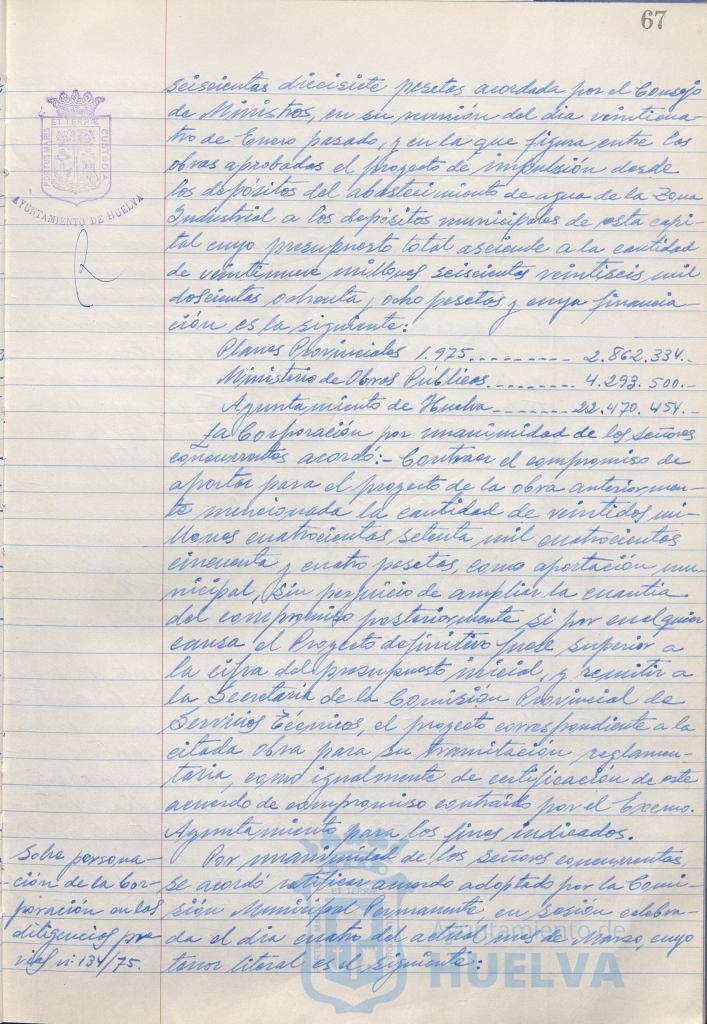 67
seiscientas diecisiete pesetas acordada por el Consejo
de Ministros, en su reunión del día veinticua-
tro de Enero pasado, y en la que figura entre las
obras aprobadas el proyecto de impulsión desde
los depósitos del abastecimiento de agua de la Zona
Industrial a los depósitos municipales de esta capi-
tal cuyo presupuesto total asciende a la cantidad
de veintinueve millones seiscientos veintiseis mil
doscientas ochenta y ocho pesetas y cuya financia-
ción es la siguiente:
Planes Provinciales 1.975.--------- 2.862.334.-
Ministerio de Obras Públicas.-------- 4.293.500.-
Ayuntamiento de Huelva------- 22.470.454.-
La Corporación por unanimidad de los Señores
concurrentes acordó:- Contraer el compromiso de
aportar para el proyecto de la obra anteriormen-
te mencionada la cantidad de veintidos mi-
llones cuatrocientas setenta mil cuatrocientas
cincuenta y cuatro pesetas, como aportación mu-
nicipal, sin perjuicio de ampliar la cuantía
del compromiso posteriormente si por cualquier
causa el Proyecto definitivo fuese superior a
la cifra del presupuesto inicial, y remitir a
la Secretaría de la Comisión Provincial de
Servicios Técnicos, el proyecto correspondiente a la
citada obra para su tramitación reglamen-
taria, como igualmente de certificación de este
acuerdo de compromiso contraído por el Excmo.
Ayuntamiento para los fines indicados.
Por unanimidad de los señores concurrentes,
se acordó ratificar acuerdo adoptado por la Comi-
sión Municipal Permanente, en sesión celebra-
da el día cuatro del actual mes de Marzo, cuyo
tenor literal es el siguiente:
Sobre persona-
ción de la Cor-
poración en las
diligencias pre-
vias nº 134/75.
PORTUS MARIS ET TERRE CUSTODIA
AYUNTAMIENTO DE HUELVA
Ayuntamiento de
HUELVA